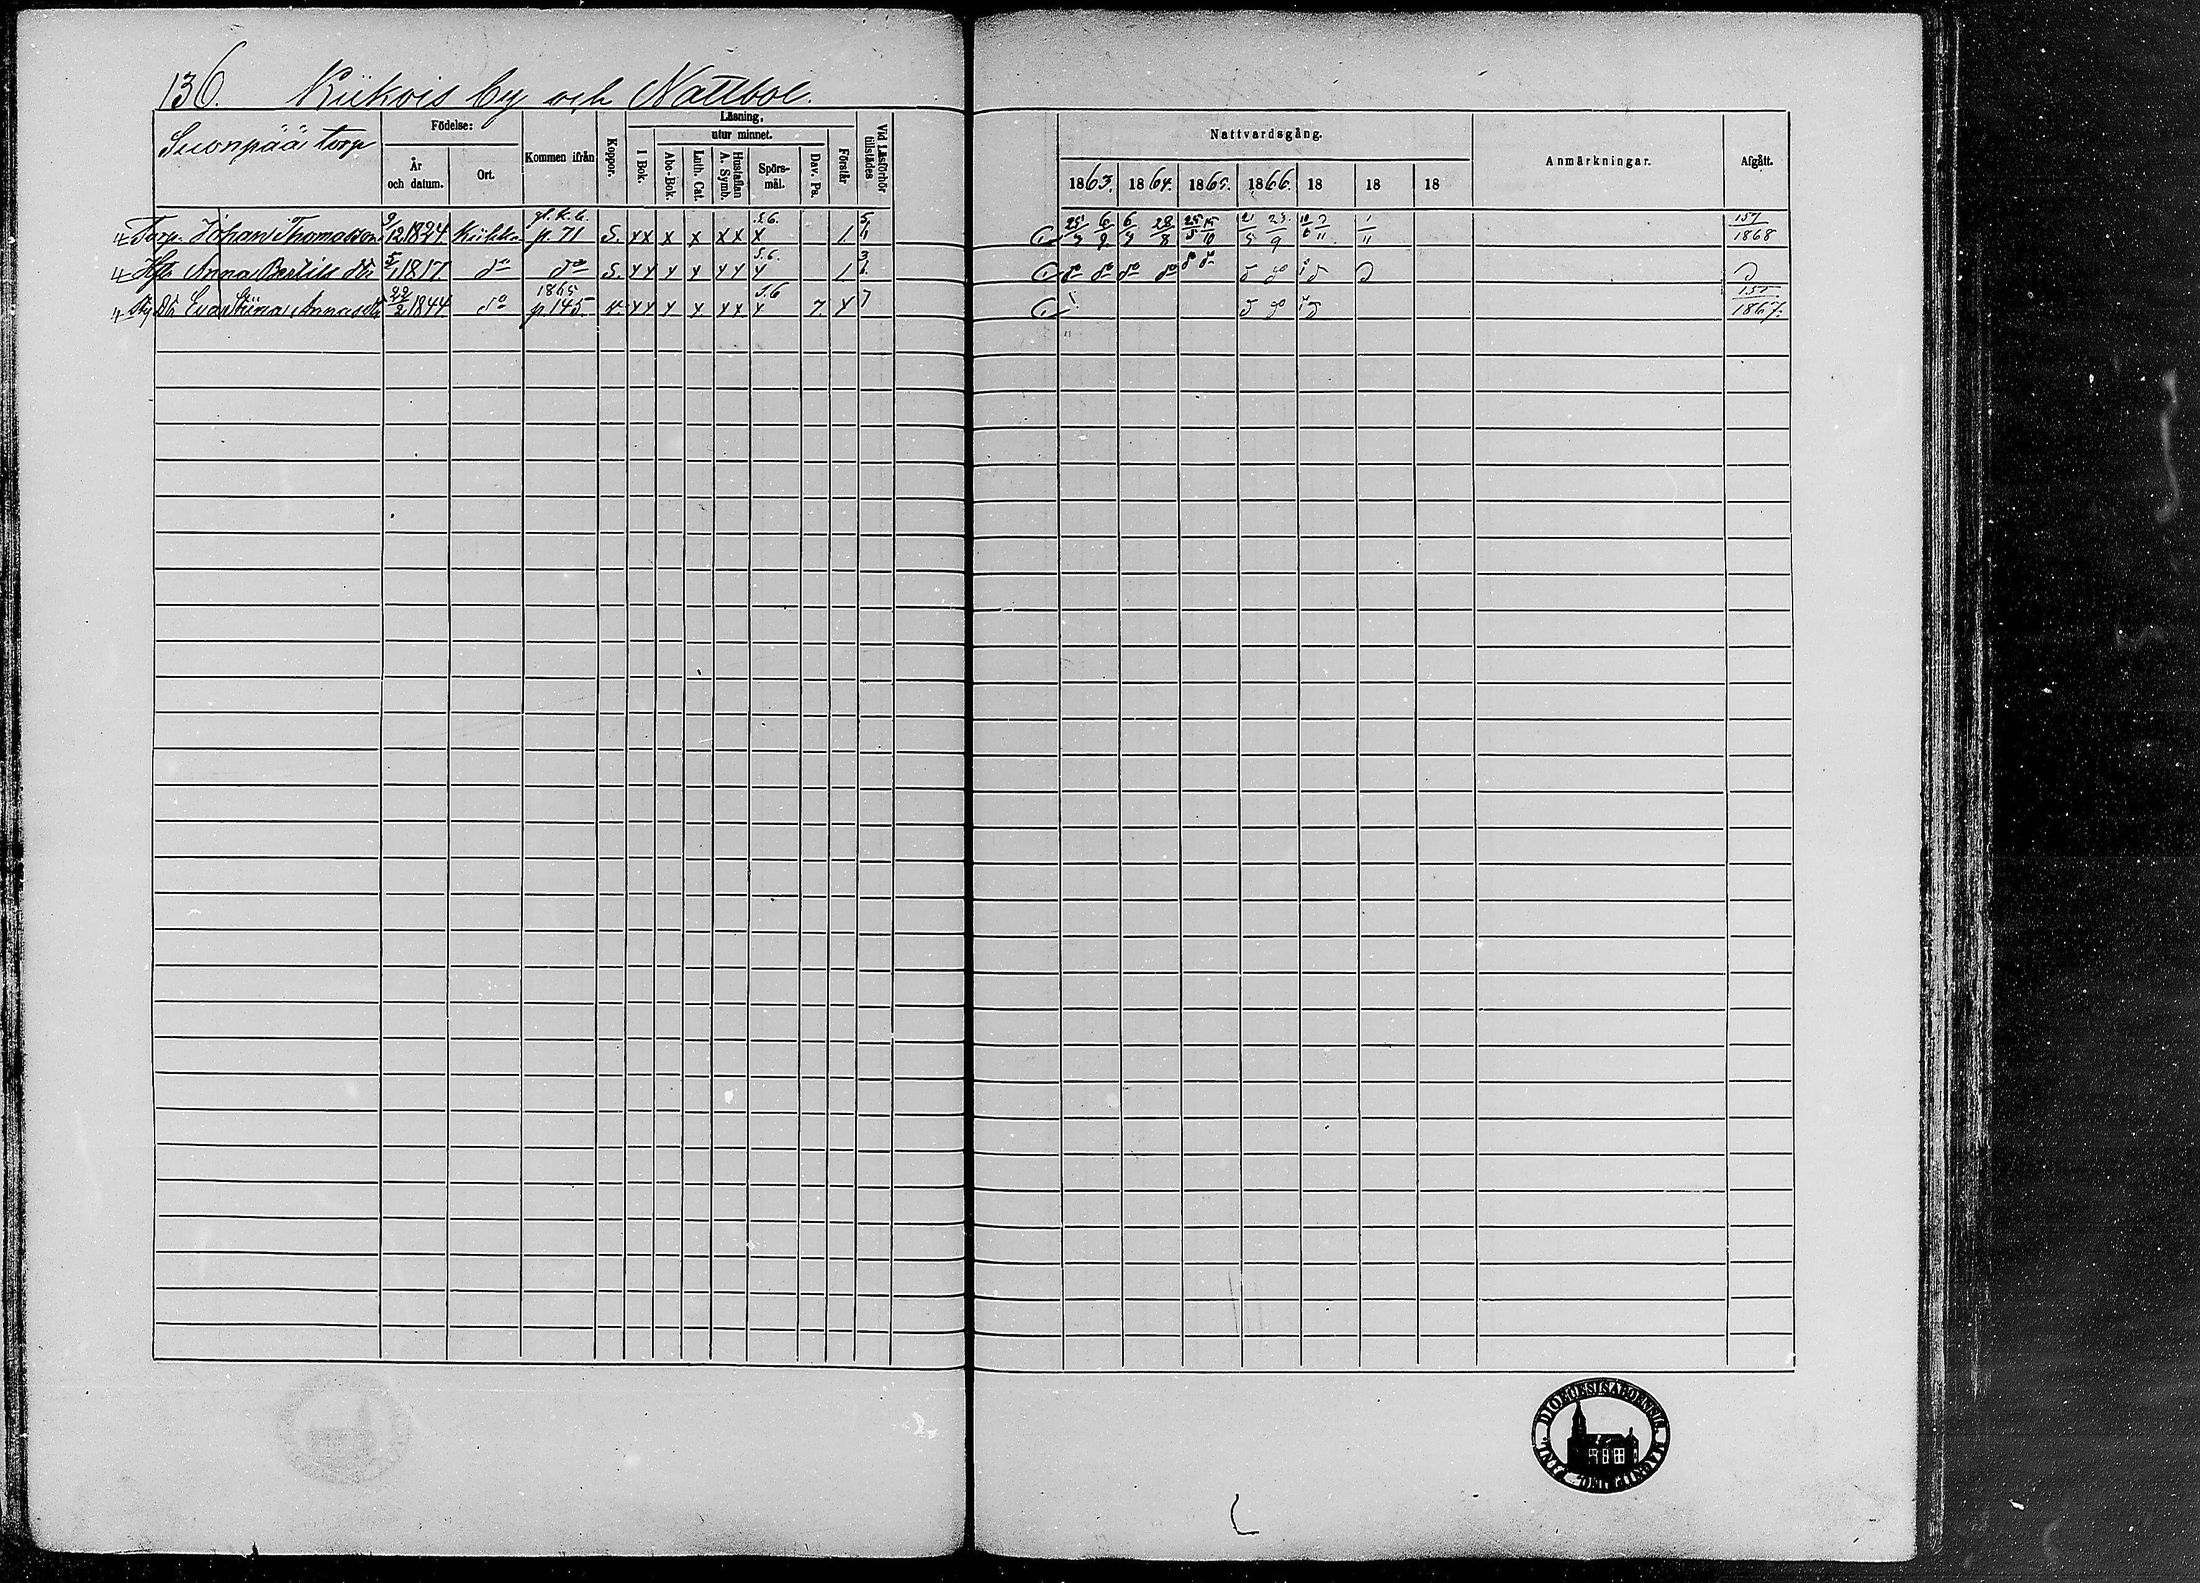 136. Kiikois by och Nattbol.
Suonpää torp
Födelse:
År och datum.
Ort.
Kommen ifrån
Koppor.
Läsning,
I Bok.
utur minnet.
Abc-Bok.
Luth. Cat.
Hustaflan A. Symb.
Spörsmål.
Dav. Ps.
Förstår
Vid Läsförhör tillstädes
Nattvardsgång.
1863. 1864. 1865. 1866. 18 18 18
Anmärkningar.
Afgått.
Torp. Johan Thomasson 9/12 1824 Kiikka gl. k. b. p. 71 S. x x x x x x 5.6. x 1. 25/ 6/9 6/9 28/8 25/5 15/10 21/5 23/9 1/11 157/1868
Hu Anna Bertils dr 5/1 1817 do do S. x x x x x x 5.6. x 1. do do do do do do
Dr Eva Stiina Annasdr 22/2 1844 do 1865 p. 145 v. x x x x x x 5.6 x 7 x 7 155/1867.
FINL. DIOECESIS ABOENSIS